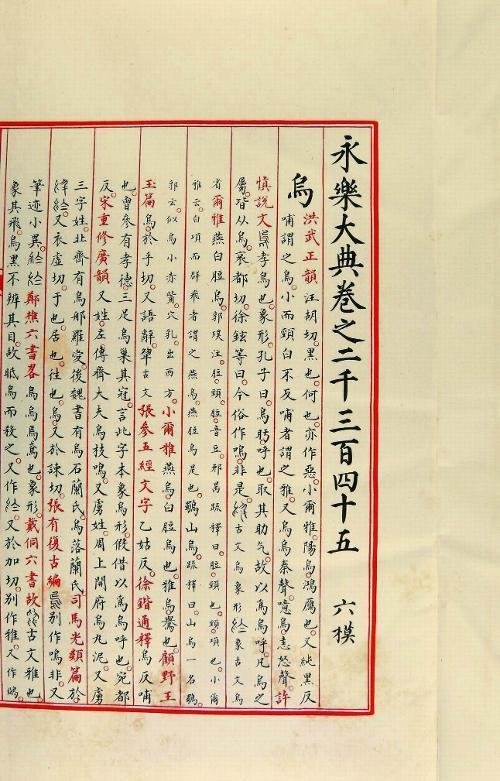 永樂大典卷之二千三百四十五 六模
烏 洪武正韻汪胡切黑也何也亦作惡小爾雅陽烏鴻鴈也又純黑反
哺謂之烏小而頸白不反哺者謂之雅又烏烏秦聲噫烏恚怒聲許
慎說文孝烏也象形孔子曰烏䀣呼也取其助气故以爲烏呼凡烏之
屬皆从烏哀都切徐鉉等曰今俗作嗚非是古文烏象形象古文烏
省爾雅燕白脰烏郭璞注脰頸脰音豆邢昺疏釋曰脰頸也頸項也小爾
雅云白項而群飛者謂之燕烏燕烏也鸒山烏疏釋曰山烏一名鸒
郭云似烏小赤觜穴乳出西方小爾雅燕烏白脰烏也雅烏鸒也顧野王
玉篇烏於乎切又語辭古文張參五經文字乙姑反徐鍇通釋烏反哺
也曾參有孝德三足烏巢其冠言此字本象烏形假借以爲烏呼也宛都
反宋重修廣韻又姓左傳齊大夫烏枝鳴又虜姓周上開府烏丸泥又虜
三字姓北齊有烏那羅愛後魏書有烏石蘭氏烏落蘭氏司馬光類篇於
又衣虛切于也居也往也烏又於諫切張有復古編別作嗚非又
筆迹小異鄭樵六書畧烏烏烏也象形戴侗六書故古文雅也
象其飛烏黑不辨其目故眡烏而殺之又作又於加切別作雅又作鴉